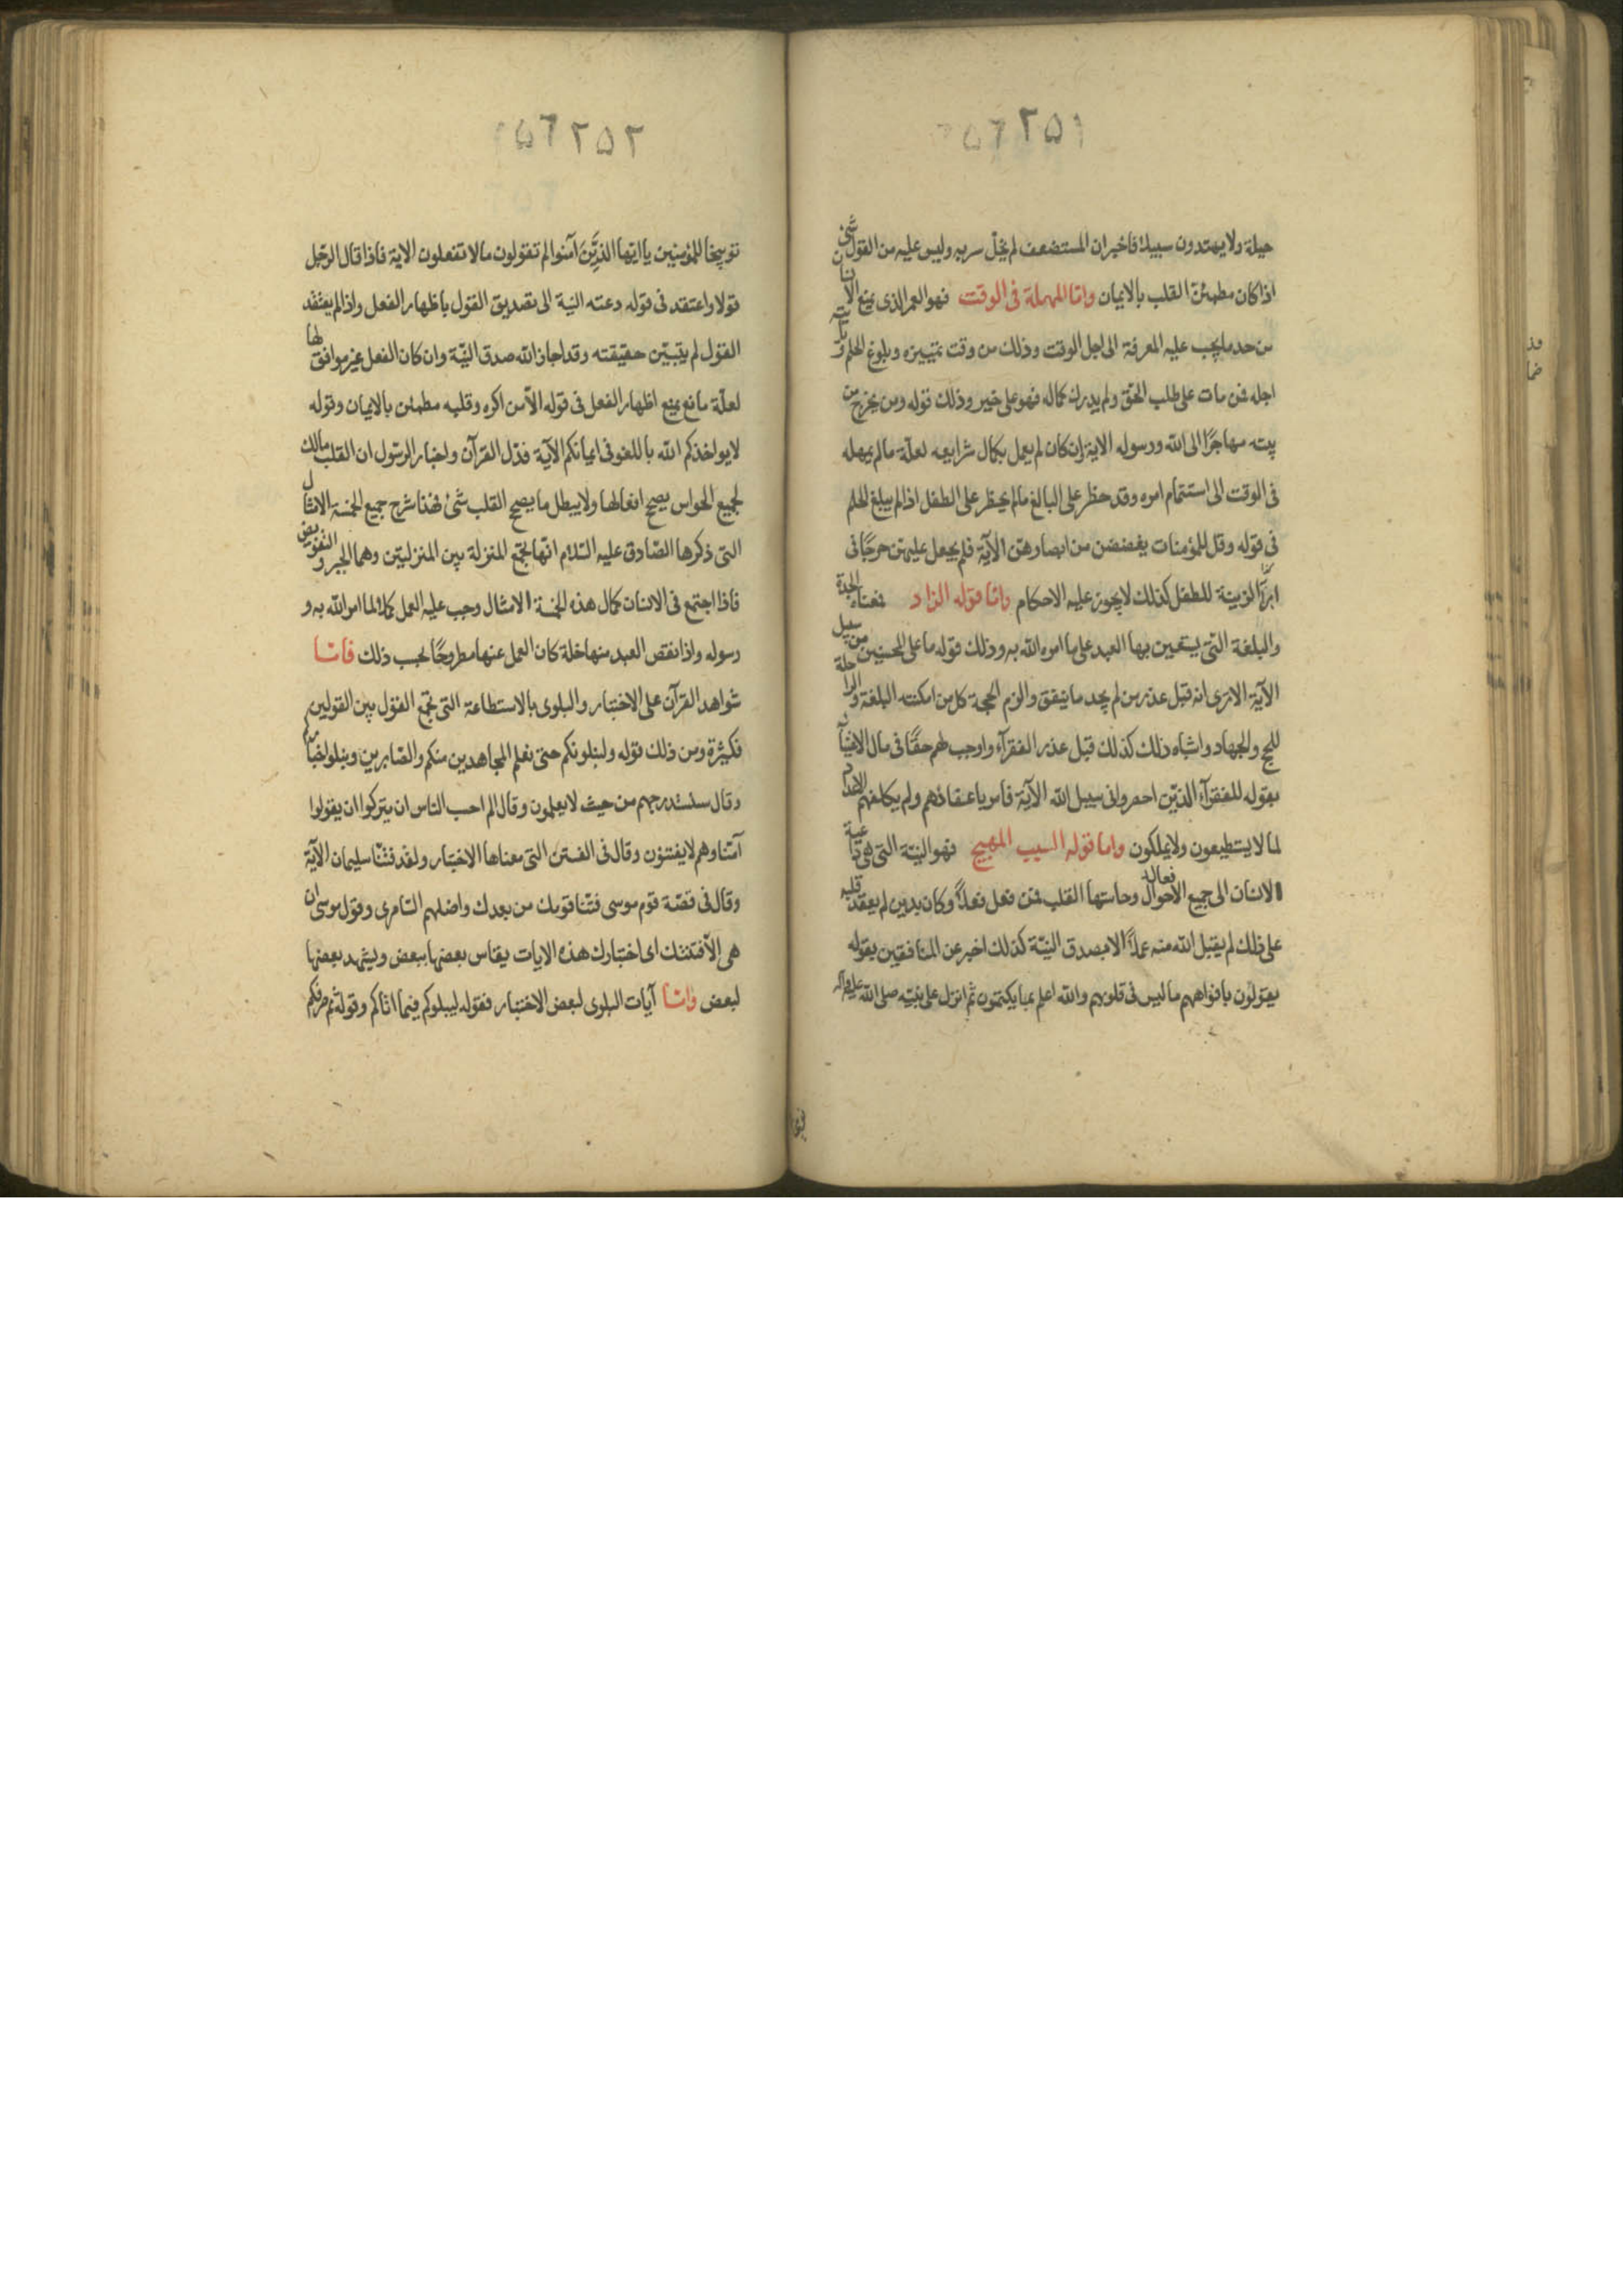 ٢٥١
حيلة ولا يهتدون سبيلا فاخبر ان المستضعف لم يخلّ سربه وليس عليه من القول شئ
اذا كان مطمئنّ القلب بالايمان وامّا المهلة فى الوقت فهو العمر الذى يمتع الانسان
من حد ما يجب عليه المعرفة الى اجل الوقت وذلك من وقت تمييزه وبلوغ الحلم و يأتيه
اجله فمن مات على طلب الحقّ ولم يدرك كماله فهو على خير وذلك قوله ومن يخرج من
بيته مهاجرًا الى الله ورسوله الاية وان كان لم يعمل بكمال شرايعه لعلّة مالم يمهله
فى الوقت الى استتمام امره وقد حظر على البالغ مالم يحظر على الطفل اذا لم يبلغ الحلم
فى قوله وقل للمؤمنات يغضضن من ابصارهنّ الآية فلم يجعل عليهنّ حرجًا فى
ابدآء الزينة للطفل كذلك لا يجوز عليه الاحكام وامّا قوله الزاد فمعناه الجدة
والبلغة التى يستعين بها العبد على ما امره الله به وذلك قوله ما على المحسنين من سبيل
الآية الا ترى انه قبل عذر من لم يجد ما ينفق والزم الحجة كل من امكنته البلغة والراحلة
للحج والجهاد واشباه ذلك كذلك قبل عذر الفقرآء واوجب لهم حقًا فى مال الاغنيآء
بقوله للفقرآء الذين احصروا فى سبيل الله الآية فامر باعفائهم ولم يكلفهم الاعداد
لما لا يستطيعون ولا يملكون واما قوله السبب المهيج فهو النيّة التى هى داعية
الانسان الى جميع الافعال وحاستها القلب فمن فعل فعلاً وكان بدين لم يعقد قلبه
على ذلك لم يقبل الله منه عملاً الا بصدق النيّة كذلك اخبر عن المنافقين بقوله
يقولون بافواههم ما ليس فى قلوبهم والله اعلم بما يكتمون ثم انزل على نبيّه صلى الله عليه وآله
٢٥٢
توبيخا للمؤمنين يا ايها الذين آمنوا لم تقولون مالا تفعلون الاية فاذا قال الرّجل
قولا واعتقد فى قوله دعته النية الى تصديق القول باظهار الفعل واذا لم يعتقد
القول لم يتبيّن حقيقته وقد اجاز الله صدق النيّة وان كان الفعل غير موافق لها
لعلّة مانع يمنع اظهار الفعل فى قوله الاّ من اكره وقلبه مطمئن بالايمان وقوله
لا يواخذكم الله باللغو فى ايمانكم الآية فدّل القرآن واخبار الرّسول ان القلب مالك
لجميع الحواس يصحح افعالها ولا يبطل ما يصحح القلب شئ فهذا شرح جميع الخمسة الامثال
التى ذكرها الصّادق عليه السّلام انّها تجمع المنزلة بين المنزلتين وهما الجبر والتفويض
فاذا اجتمع فى الانسان كمال هذه الخمسة الامثال وجب عليه العمل كملا لما امر الله به و
رسوله واذا نقص العبد منها خلة كان العمل عنها مطروحًا بحسب ذلك فامّا
شواهد القرآن على الاختبار والبلوى بالاستطاعة التى تجمع القول بين القولين
فكثيرة ومن ذلك قوله ولنبلونكم حتى نعلم المجاهدين منكم والصّابرين ونبلو اخباركم
وقال سنستدرجهم من حيث لا يعلمون وقال الم احسب الناس ان يتركوا ان يقولوا
آمنّا وهم لا يفتنون وقال فى الفتن التى معناها الاختبار ولقد فتنّا سليمان الآية
وقال فى قصّة قوم موسى فتنّا قومك من بعدك واضلهم السّامرى وقول موسى ان
هى الاّ فتنتك اى اختبارك هذه الايات يقاس بعضها ببعض ويشهد بعضها
لبعض وامّا آيات البلوى لبعض الاختبار فقوله ليبلوكم فيما اتاكم وقوله ثم صرفكم